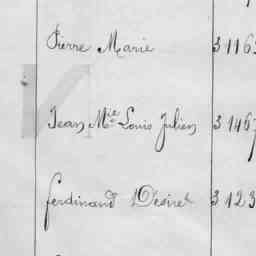 Pierre Marie 3 116
Jean Mie Louis Julien 3 1467
Ferdinand Désiré 3 123